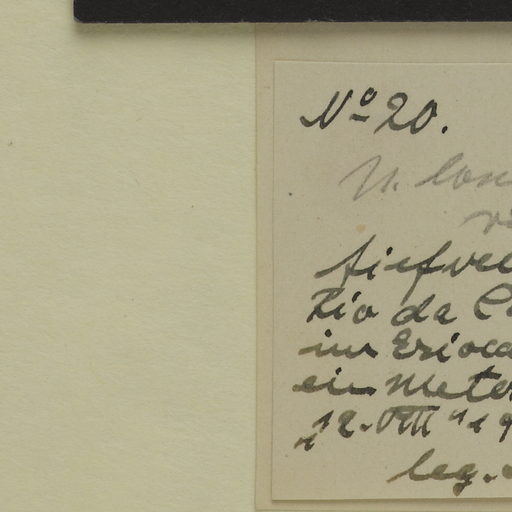 Nº 20.
N. lon
tiefwe
Rio da C
im Erioca
ein Meter
12. VIII 19
leg.